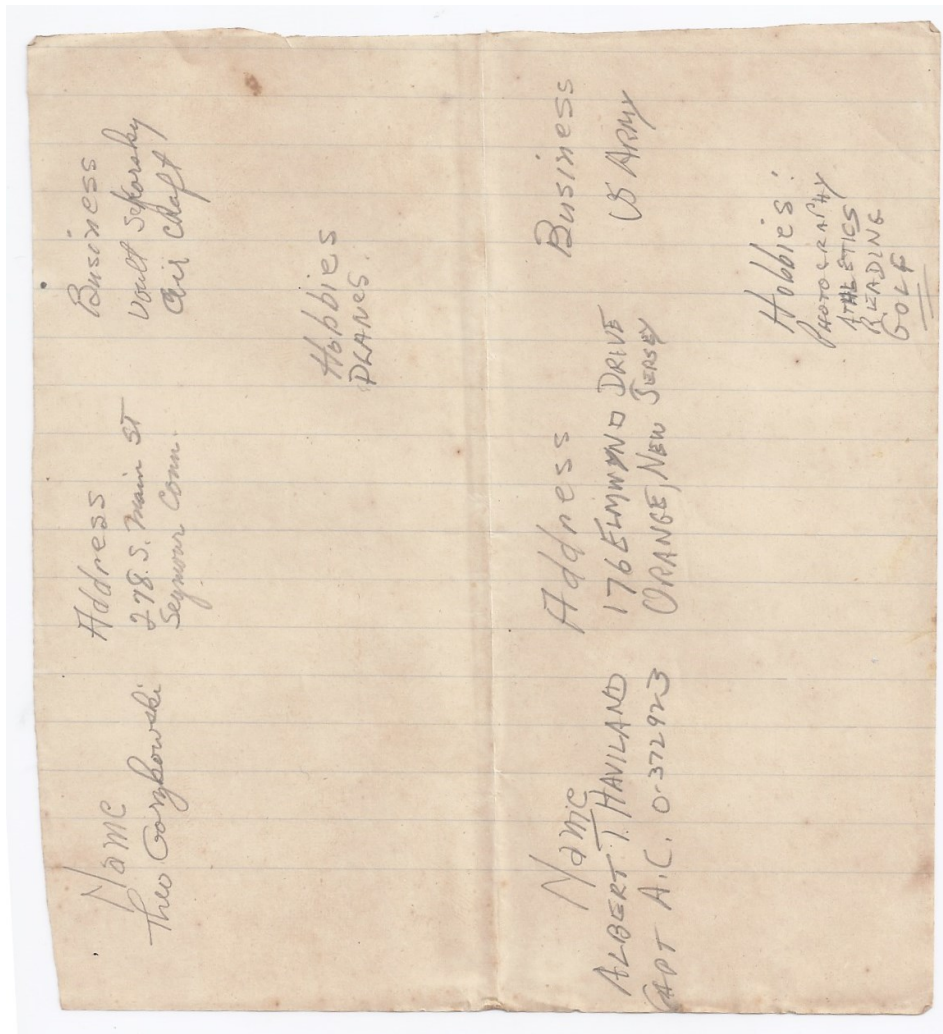 Name
Theo Gorzkowski
Address
278 S. Main ST
Seymour Conn.
Business
Vault Sikorsky
Air Craft
Hobbies
PLANES.
Name
ALBERT T. HAVILAND
CAPT A.C. O-372923
Address
176 ELMWYND DRIVE
ORANGE, NEW JERSEY
Business
US ARMY
Hobbies:
PHOTOGRAPHY
ATHLETICS
READING
GOLF